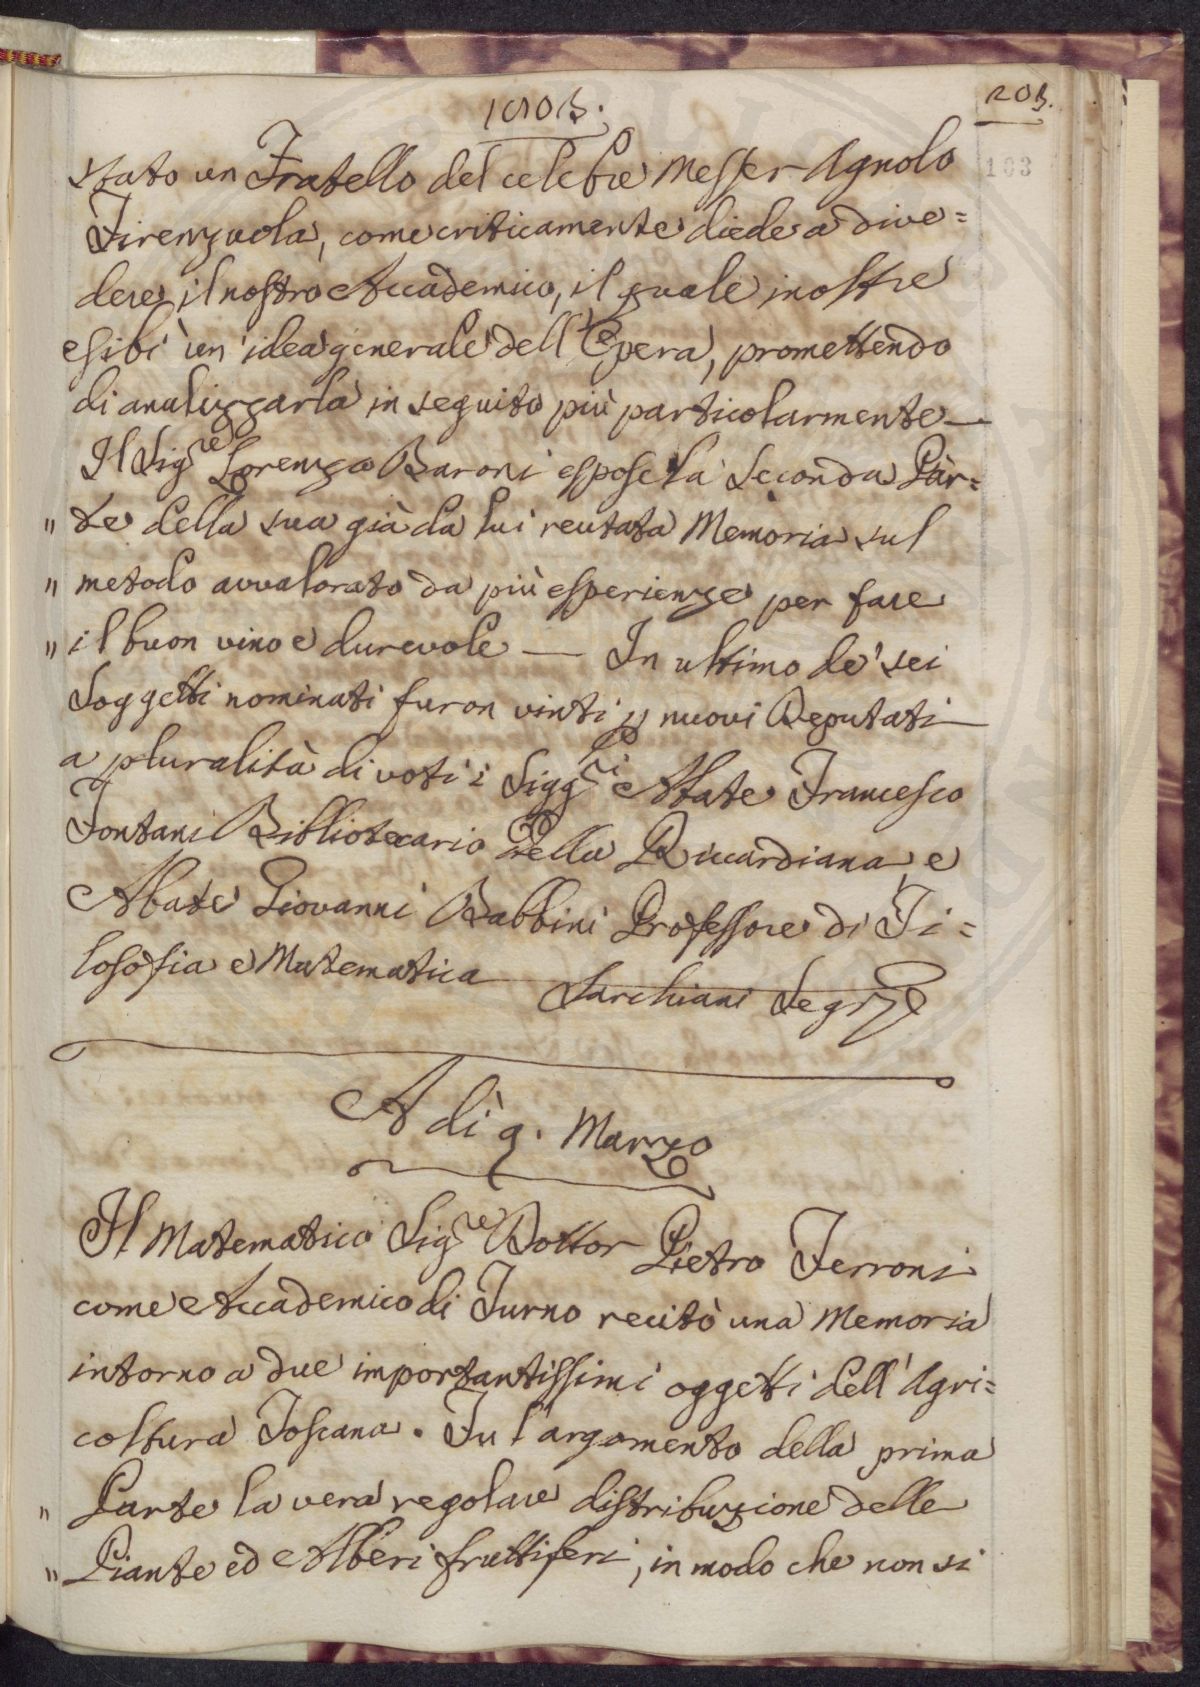 1808.
203.
103
stato un Fratello del celebre Messer Agnolo
Firenzuola, come criticamente diede a dive=
dere il nostro Accademico, il quale inoltre
esibì un'idea generale dell'Opera, promettendo
di analizzarla in seguito più particolarmente —
Il Sig.re Lorenzo Baroni espose la Seconda Par=
" te della sua già da lui recitata Memoria sul
" metodo avvalorato da più esperienze per fare
" il buon vino e durevole — In ultimo de' sei
Soggetti nominati furon vinti p nuovi Deputati
a pluralità di voti i Sigg.ri Abate Francesco
Fontani Bibliotecario della Riccardiana, e
Abate Giovanni Babbini Professore di Fi=
losofia e Matematica
Sarchiani Segr.
A dì 9. Marzo
Il Matematico Sig.re Dottor Pietro Ferroni
come Accademico di Turno recitò una Memoria
intorno a due importantissimi oggetti dell'Agri=
coltura Toscana. Fu l'argomento della prima
" Parte la vera regolare distribuzione delle
" Piante ed Alberi fruttiferi, in modo che non si